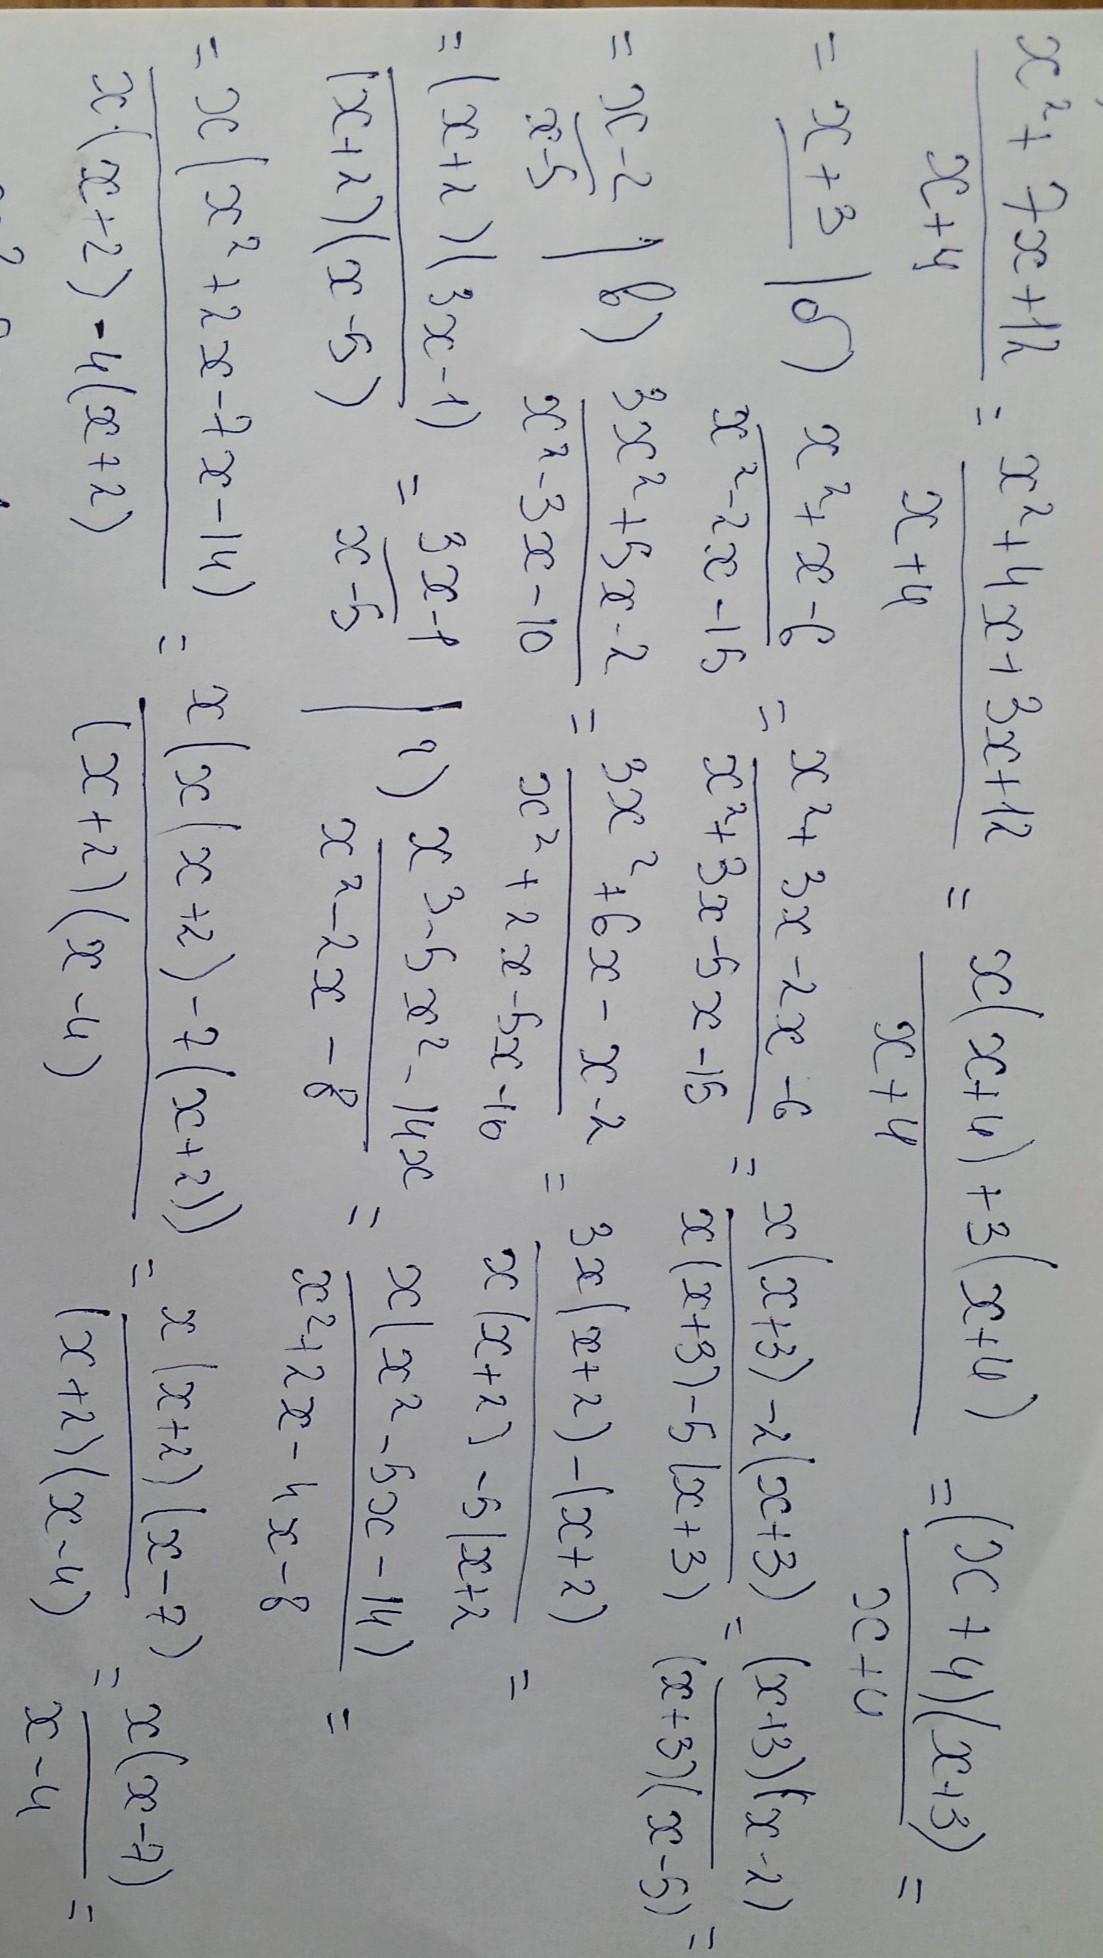 x²+7x+12 / x+4 = x²+4x+3x+12 / x+4 = x(x+4)+3(x+4) / x+4 = (x+4)(x+3) / x+4 =
= x+3 | б) x²+x-6 / x²-2x-15 = x²+3x-2x-6 / x²+3x-5x-15 = x(x+3)-2(x+3) / x(x+3)-5(x+3) = (x+3)(x-2) / (x+3)(x-5) =
= x-2 / x-5 | в) 3x²+5x-2 / x²-3x-10 = 3x²+6x-x-2 / x²+2x-5x-10 = 3x(x+2)-(x+2) / x(x+2)-5(x+2 =
= (x+2)(3x-1) / (x+2)(x-5) = 3x-1 / x-5 | г) x³-5x²-14x / x²-2x-8 = x(x²-5x-14) / x²+2x-4x-8 =
= x(x²+2x-7x-14) / x·(x+2)-4(x+2) = x(x(x+2)-7(x+2)) / (x+2)(x-4) = x(x+2)(x-7) / (x+2)(x-4) = x(x-7) / x-4 =